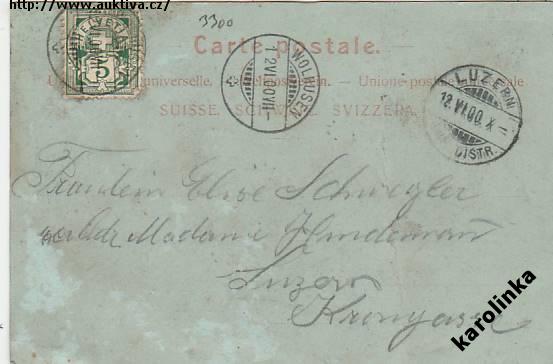 http://www.auktiva.cz/
3300
HELVETIA
5
Carte postale.
universelle. Weltpostverein. Union postale universale
SUISSE. SCHWEIZ. SVIZZERA.
WOLHUSEN
12.VI.00.VII-
LUZERN
12.VI.00.X
DISTR.
Fräulein Elise Schwegler
Madame
Luzern
karolinka